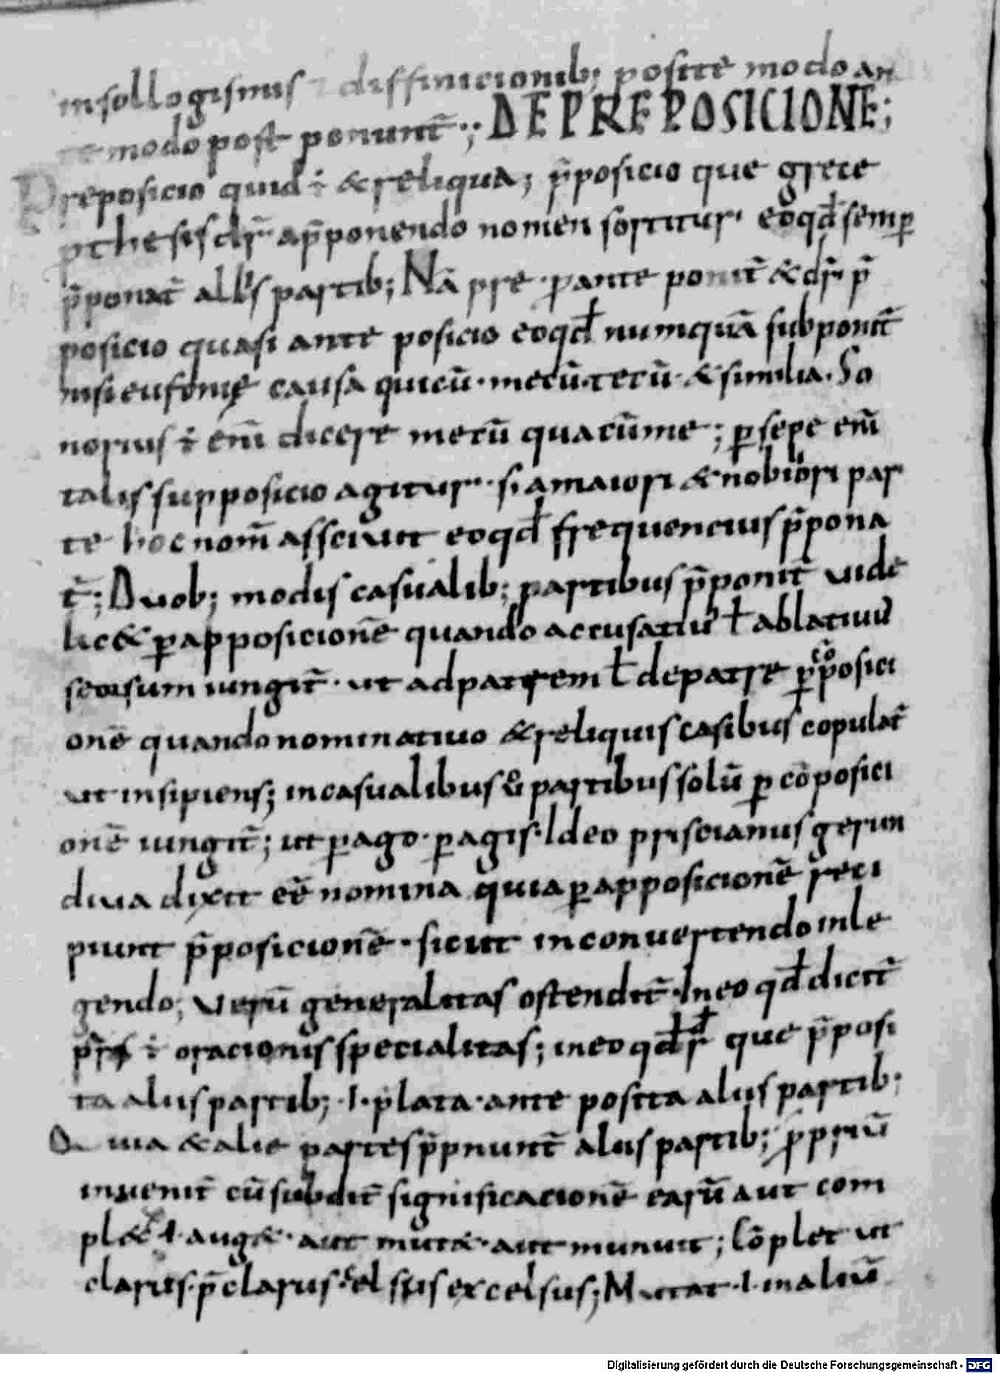 insollogismis diffinicionib; posite modo an
te modo post ponunt̄.; DE PREPOSICIONE;
Preposicio quid ē &reliqua; p̄posicio que grece
pthesis dr̄ app̄onendo nomen sortitur. eoqd̄ semꝑ
p̄ponat̄ aliis partib; Nā pre. ꝓ ante ponit̄ & dr̄ p̄
posicio quasi ante posicio eoqd̄ numquā subponit̄
nisi eufonię causa quicū. mecū. tecū. & similia. So
norius ē em̄ dicere mecū quacūme; ꝑ sepe em̄
talis supposicio agitur. si amaiori & nobiliori par
te hoc nom̄ asscivit eoqd̄ frequencius p̄pona
t̄; Duob; modis casualib; partibus p̄ponit̄ uide
lic& ꝑ apposicionē quando accusatiuo ł ablatiuū
sensum iungit̄. ut adpatrem ł depatre ꝑ cōposici
onē quando nominatiuo & reliquis casibus copulat̄
ut insipiens; incasualibus ū partibus solū ꝑ cōposici
onē iungit̄; ut ꝑago. ꝑagis. Ideo priscianus gerun
diua dixit eē nomina quia ꝑ apposicionē reci
piunt p̄posicionē. sicut inconuertendo inle
gendo; Verū generalitas ostendit̄. In eo qd̄ dicit̄
pars ē oracionis specialitas; ineo qd̄ dr̄ que p̄posi
ta aliis partib; .i. p̄lata. ante posita aliis partib;
Quia & alie partes p̄pnunt̄ aliis partib; ꝓpriū
inuenit̄ cū subdit̄ significacionē earū aut com
pl& ł. aug&. aut mut&. aut minuit; Cōplet ut
clarus. p̄clarus. Cel sus excelsus; Mutat .i. inaliū